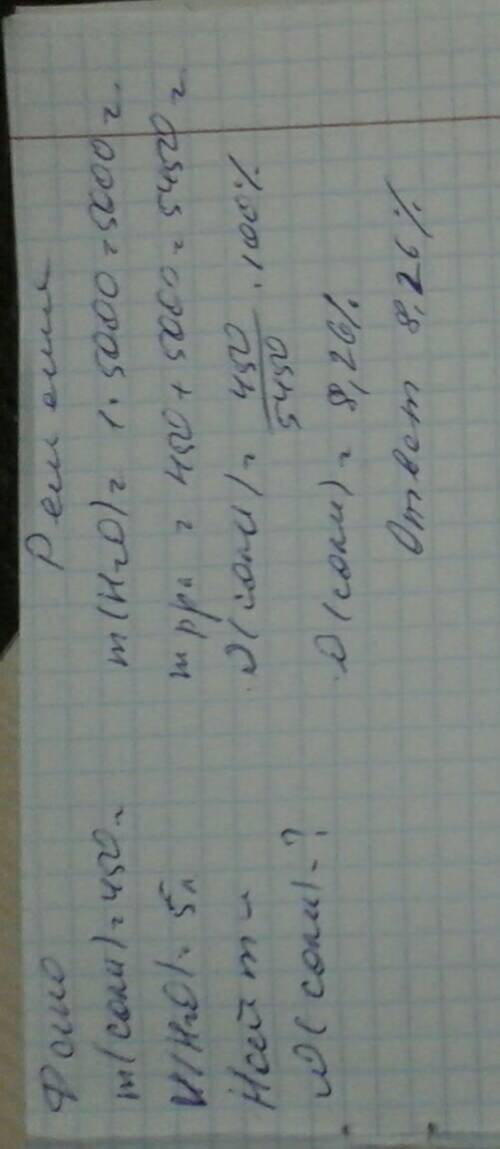 Дано
m(соли)=450г
V(H2O)=5л
Найти
ω(соли)-?
Решение
m(H2O)=1·5000=5000г.
m рра = 450+5000=5450г
ω(соли)= 450/5450 ·100%
ω(соли)=8,26%
Ответ 8,26%